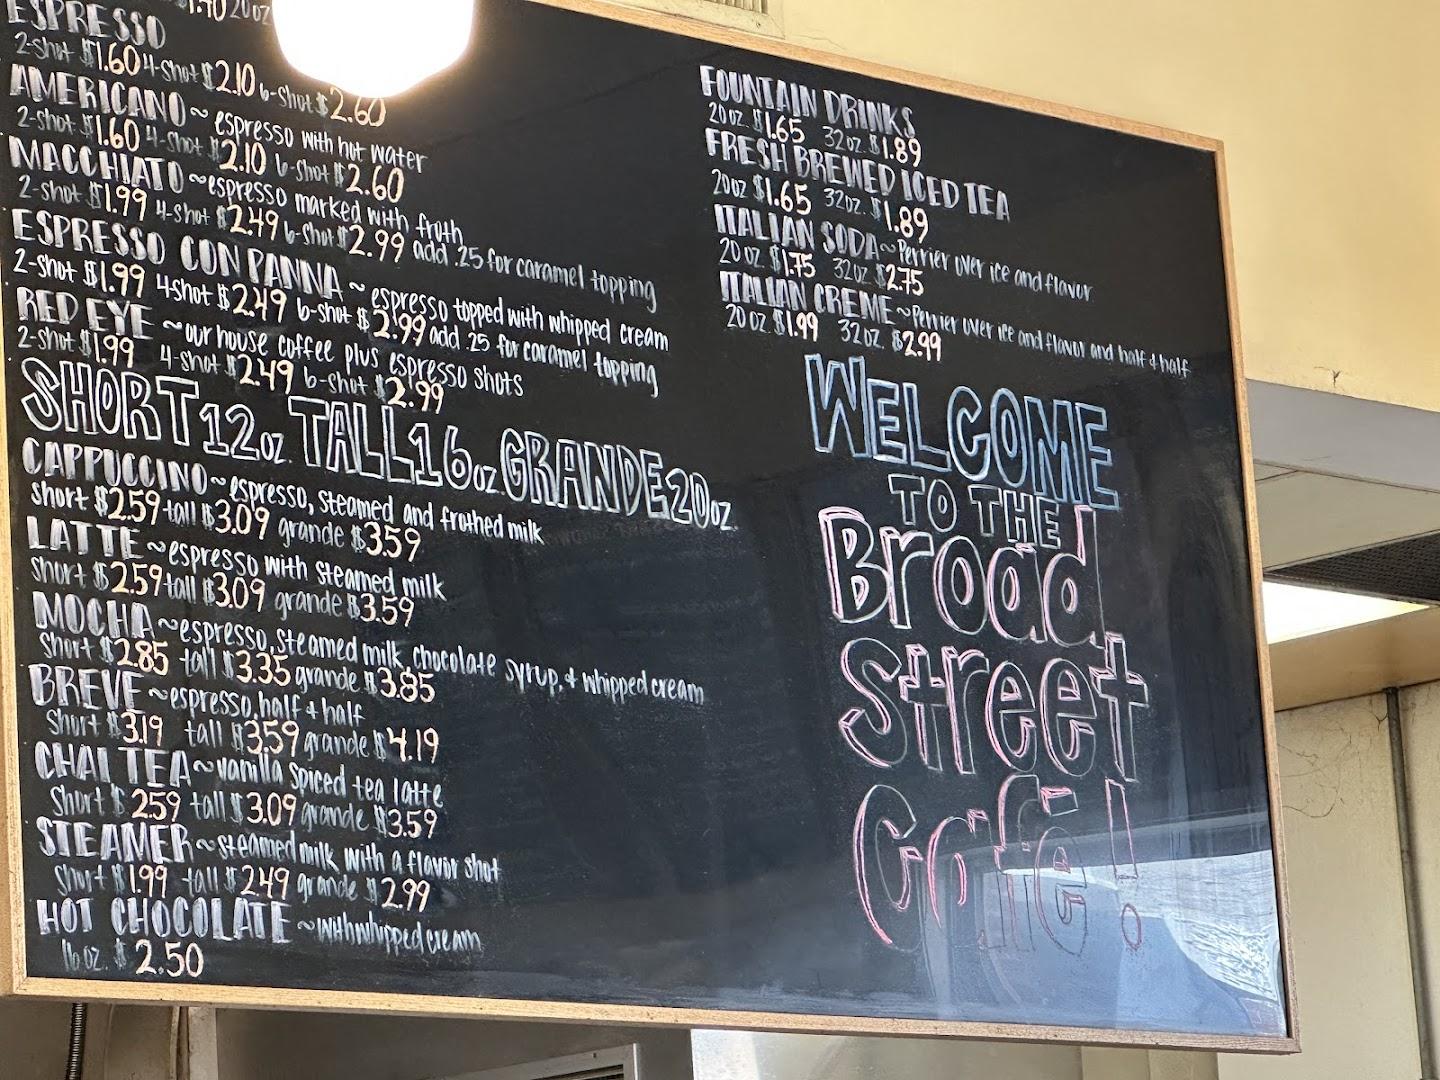 $1.40 20oz
ESPRESSO
2-shot $1.60 4-shot $2.10 6-shot $2.60
AMERICANO ~ espresso with hot water
2-shot $1.60 4-shot $2.10 6-shot $2.60
MACCHIATO ~ espresso marked with froth
2-shot $1.99 4-shot $2.49 6-shot $2.99 add .25 for caramel topping
ESPRESSO CON PANNA ~ espresso topped with whipped cream
2-shot $1.99 4-shot $2.49 6-shot $2.99 add .25 for caramel topping
RED EYE ~ our house coffee plus espresso shots
2-shot $1.99 4-shot $2.49 6-shot $2.99
SHORT 12oz. TALL 16oz GRANDE 20oz.
CAPPUCCINO ~ espresso, steamed and frothed milk
short $2.59 tall $3.09 grande $3.59
LATTE ~ espresso with steamed milk
short $2.59 tall $3.09 grande $3.59
MOCHA ~ espresso, steamed milk, chocolate syrup, + whipped cream
short $2.85 tall $3.35 grande $3.85
BREVE ~ espresso, half + half
short $3.19 tall $3.59 grande $4.19
CHAI TEA ~ vanilla spiced tea latte
short $2.59 tall $3.09 grande $3.59
STEAMER ~ steamed milk with a flavor shot
short $1.99 tall $2.49 grande $2.99
HOT CHOCOLATE ~ with whipped cream
16 oz. $2.50
FOUNTAIN DRINKS
20 oz. $1.65 32 oz. $1.89
FRESH BREWED ICED TEA
20 oz $1.65 32oz. $1.89
ITALIAN SODA ~ Perrier over ice and flavor
20 oz. $1.75 32 oz. $2.75
ITALIAN CREME ~ Perrier over ice and flavor and half + half
20 oz. $1.99 32 oz. $2.99
WELCOME
TO THE
Broad
Street
Café!